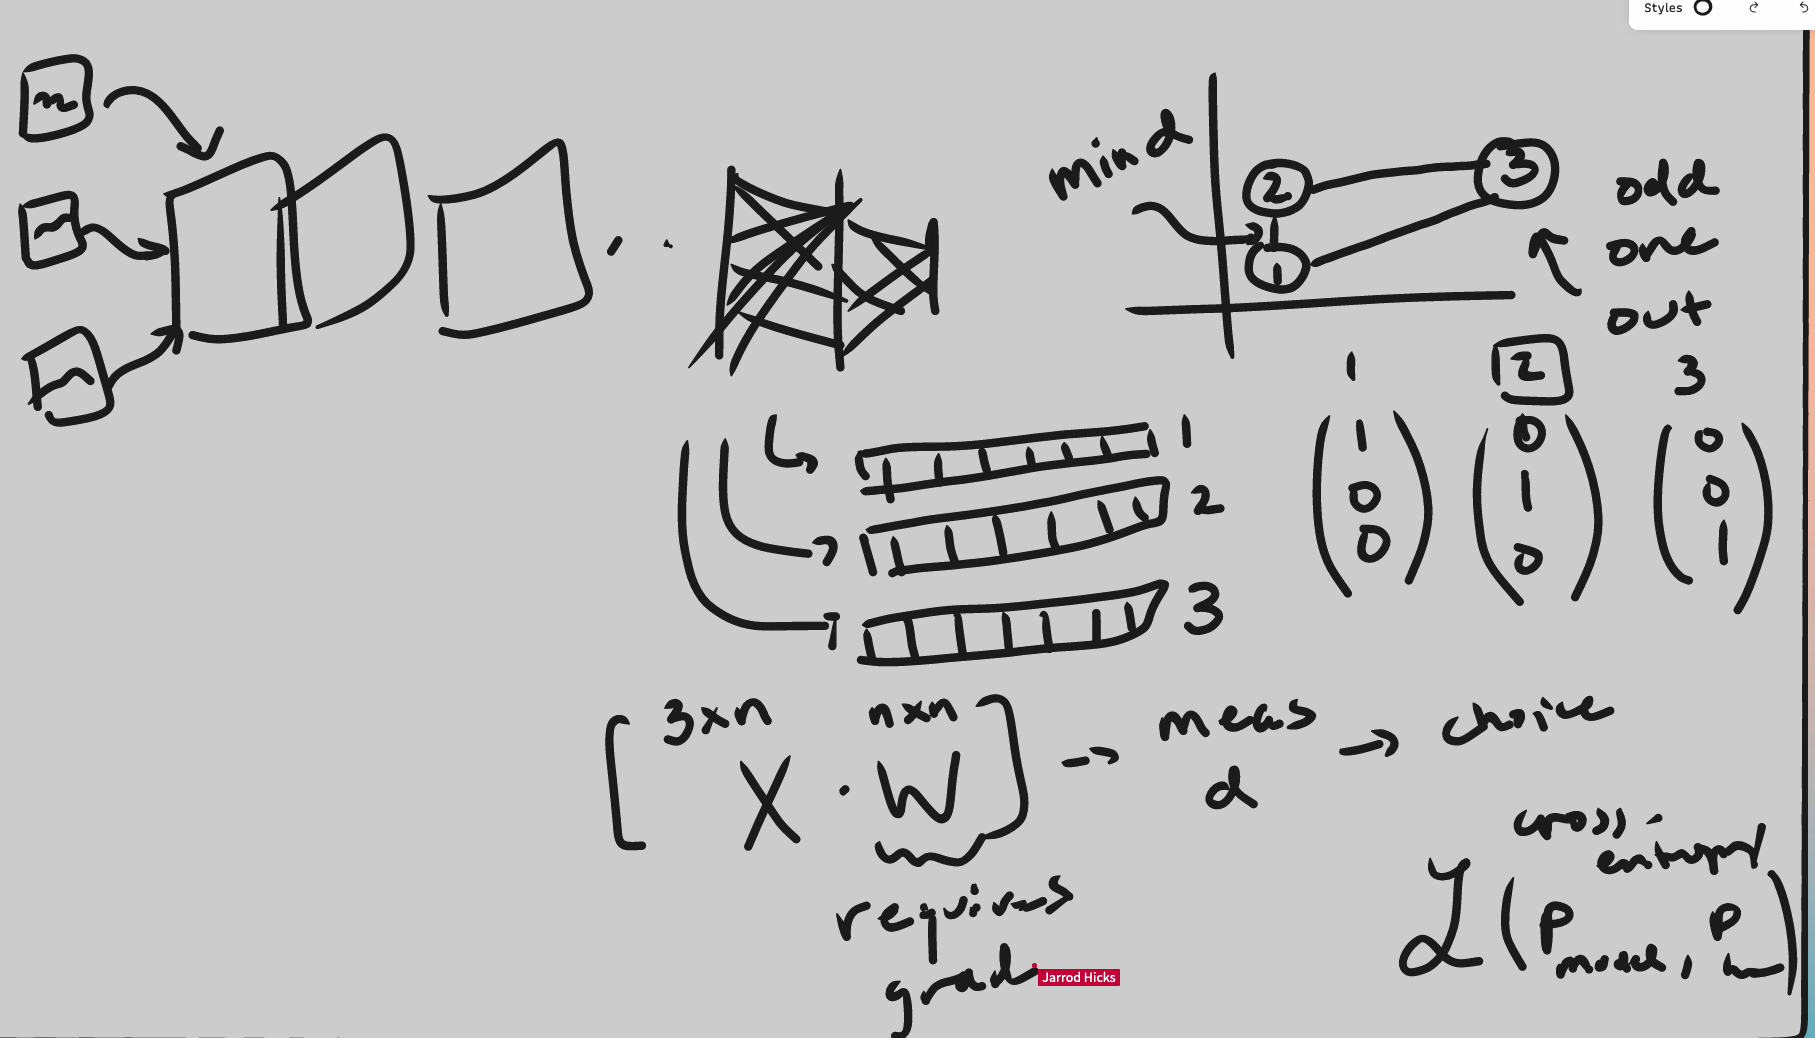 Styles
min d
2
3
1
odd
one
out
1 2 3
1 0 0
0 1 0
0 0 1
1
2
3
[ 3xn nxn ]
X · W → meas d → choice
requires
grad
Jarrod Hicks
cross-
entropy
L ( P model, P h )